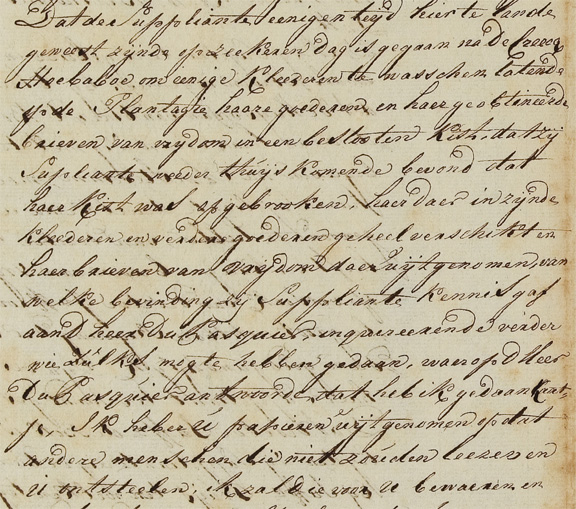 Dat der Suppliante eenigen teyd hier te lande
geweest zynde op zeekeren dag is gegaan na de Creecq
Hoebaboe om eenige kleederen te wasschen latende
op de Plantagie haare goederen en haer geobtineerde
brieven van vrydom in een beslooten Kist, dat zy
Suppliante weeder thuys komende bevond dat
haer Kist was opgebrooken, haer daer in zynde
kleederen en verdere goederen geheel verschikt en
haer brieven van vrydom daer uyt genomen, van
welke bevinding zy Suppliante kennis gaf
aan d heer Du Pasquier, inquereerende verder
wie zulks mogte hebben gedaan, waerop d Heer
Du Pasquier antwoorde, dat heb ik gedaan
Ik heb u papieren uyt genomen op dat
andere menschen die niet zouden leezen en
u ontsteelen; ik zal die voor u bewaeren en